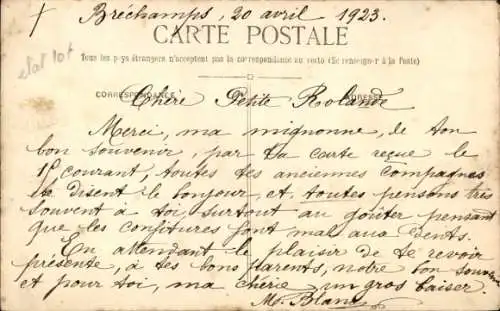 Bréchamps, 20 avril 1923.
CARTE POSTALE
etat lot
Tous les pays étrangers n'acceptent pas la correspondance au recto (Se renseigner à la Poste)
CORRESPONDANCE
ADRESSE
Chère Petite Rolande
Merci, ma mignonne, de ton
bon souvenir, par ta carte reçue le
1er courant, toutes tes anciennes compagnes
te disent le bonjour, et toutes pensons très
souvent à toi, surtout au goûter pensant
que les confitures font mal aux dents.
En attendant le plaisir de te revoir
présente, à tes bons parents, notre bon souvenir
et pour toi, ma chérie un gros baiser.
M. Blanc